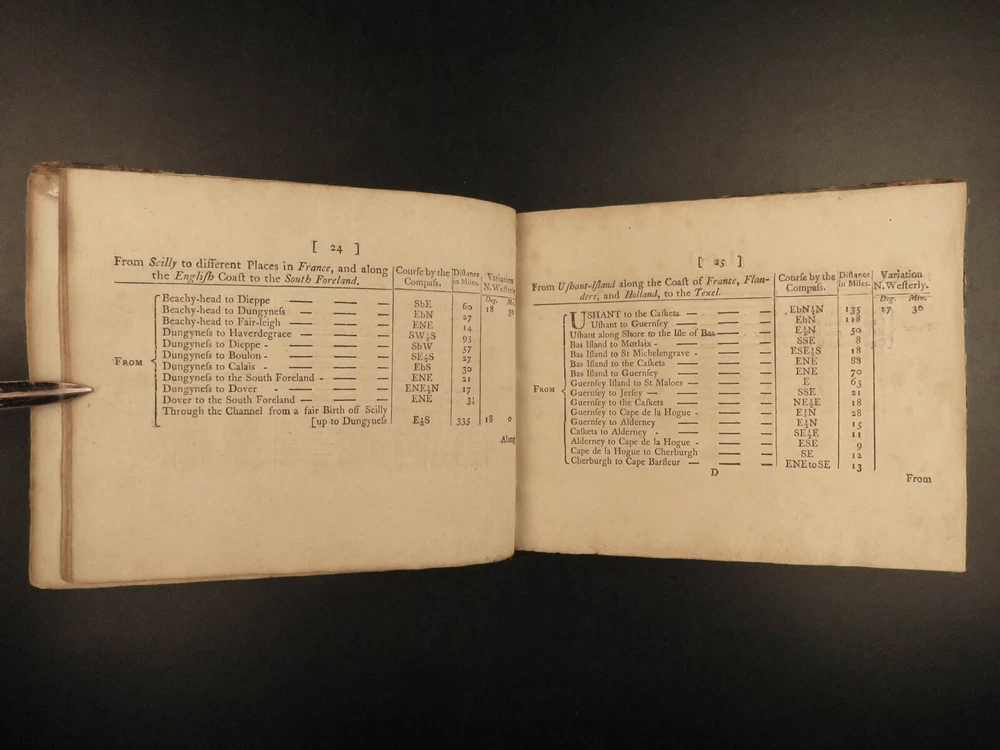 [ 24 ]
From Scilly to different Places in France, and along
the Engliſh Coaſt to the South Foreland.
Courſe by the Compaſs.
Diſtance in Miles.
Variation N. Weſterly.
Deg. Mi.
Beachy-head to Dieppe — — — SbE 60 18 30
Beachy-head to Dungyneſs — — — EbN 27
Beachy-head to Fair-leigh — — — ENE 14
Dungyneſs to Haverdegrace — — — SW½S 93
Dungyneſs to Dieppe - — — — SbW 57
Dungyneſs to Boulon - — — — SE½S 27
FROM Dungyneſs to Calais - — — — EbS 30
Dungyneſs to the South Foreland - — — ENE 21
Dungyneſs to Dover - — — — ENE½N 17
Dover to the South Foreland — — — ENE 3½
Through the Channel from a fair Birth off Scilly
[up to Dungyneſs E½S 335 18 0
Along
[ 25 ]
From Uſhant-Iſland along the Coaſt of France, Flan-
ders, and Holland, to the Texel.
Courſe by the Compaſs.
Diſtance in Miles.
Variation N. Weſterly.
Deg. Min.
USHANT to the Caſkets — — — EbN½N 135 17 30
Uſhant to Guernſey — — — EbN 118
Uſhant along Shore to the Iſle of Bas — — E½N 50
Bas Iſland to Morlaix - — — — SSE 8
Bas Iſland to St Michelengrave - — — ESE½S 18
Bas Iſland to the Caſkets — — — ENE 88
Bas Iſland to Guernſey — — — ENE 70
Guernſey Iſland to St Maloes — — — E 63
FROM Guernſey to Jerſey — — — — SSE 21
Guernſey to the Caſkets — — — NE½E 18
Guernſey to Cape de la Hogue - — — E½N 28
Guernſey to Alderney — — — E½N 15
Caſkets to Alderney - — — — SE½E 11
Alderney to Cape de la Hogue - — — ESE 9
Cape de la Hogue to Cherburgh — — SE 12
Cherburgh to Cape Barfleur — — — ENE to SE 13
D
From